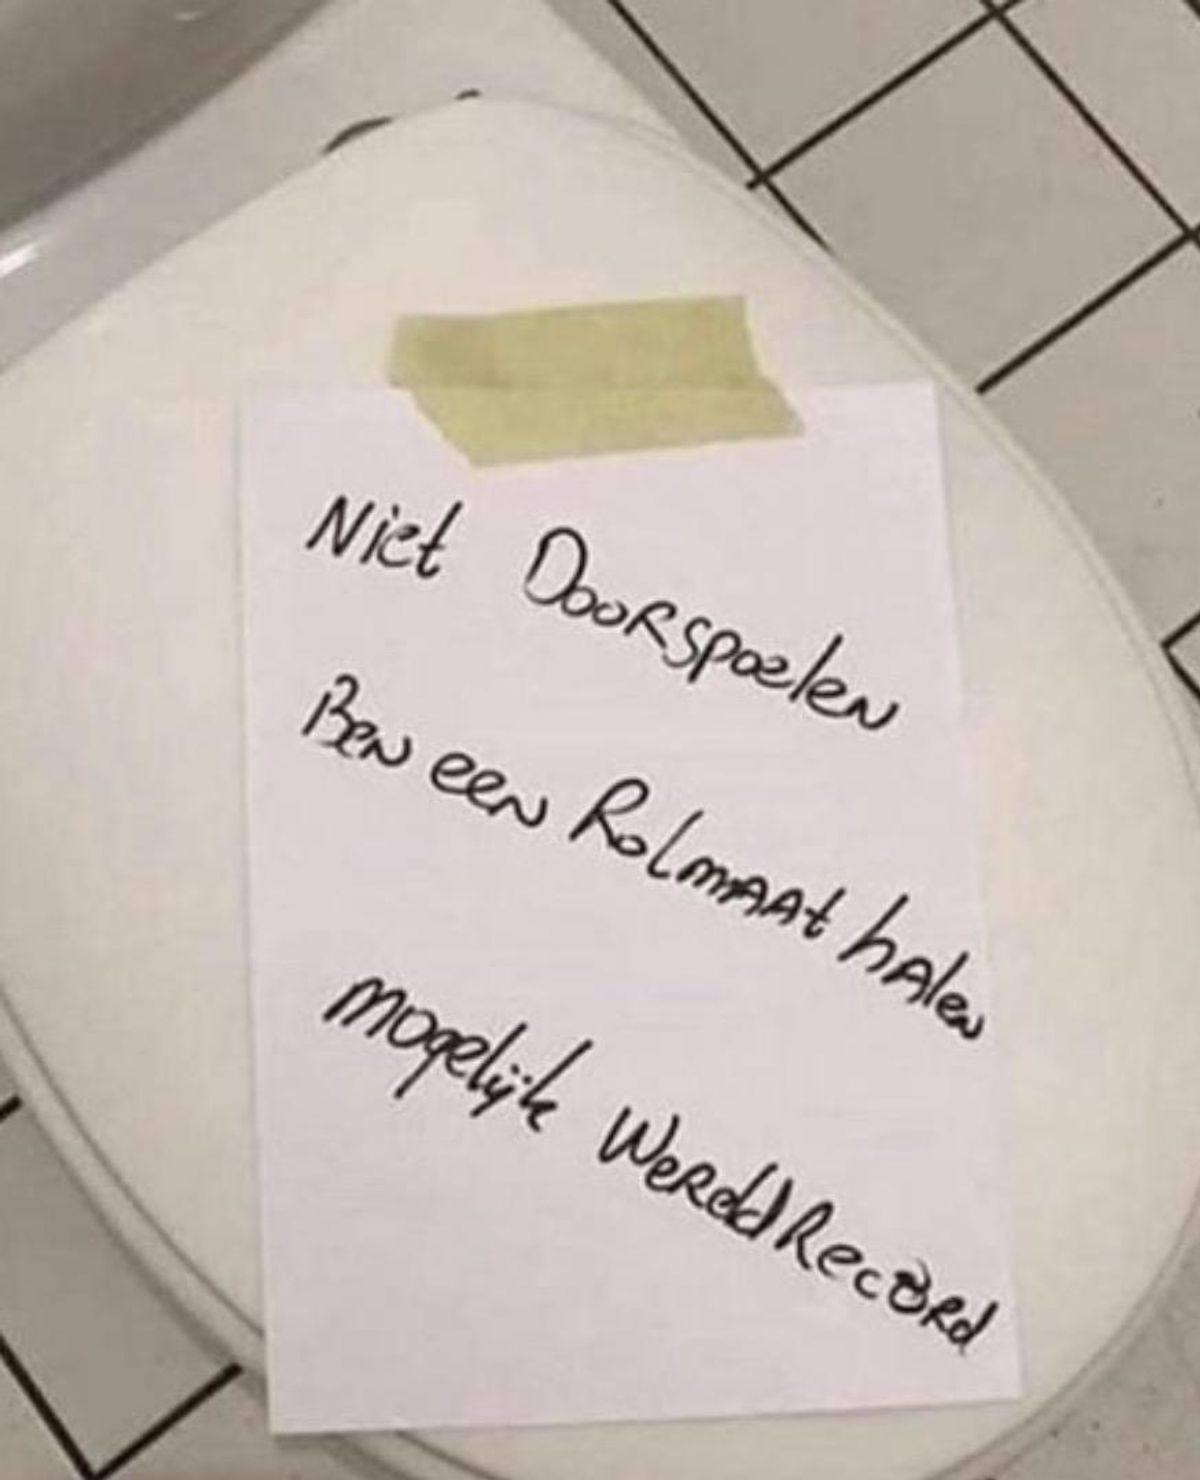 Niet Doorspoelen
Ben een Rolmaat halen
Mogelijk WereldRecord